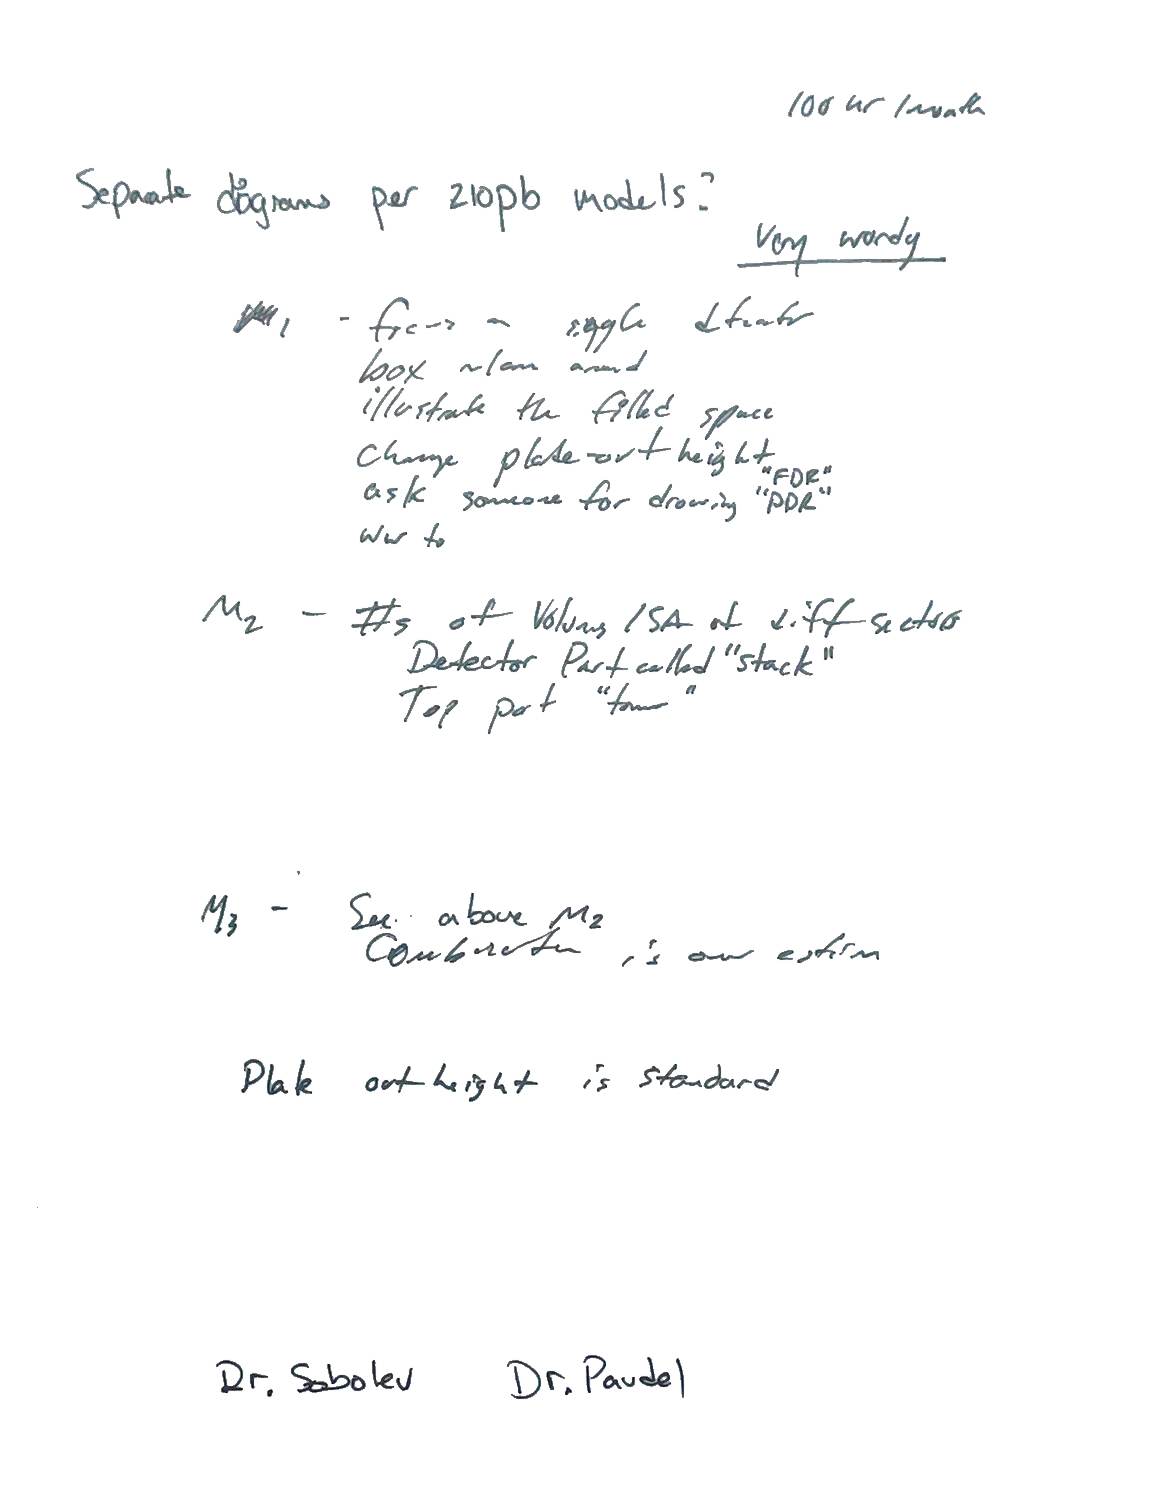 100 hr / month
Separate diagrams per 210pb models?
Very wordy
M1 - focus on single detector
box around
illustrate the filled space
change plate-out height
"FDR"
ask someone for drawing "PDR"
to
M2 - #s of Volume / SA at diff sections
Detector Part called "stack"
Top part "tower"
M3 - See above M2
Combination is our estim
Plate out height is standard
Dr. Sobolev Dr. Paudel